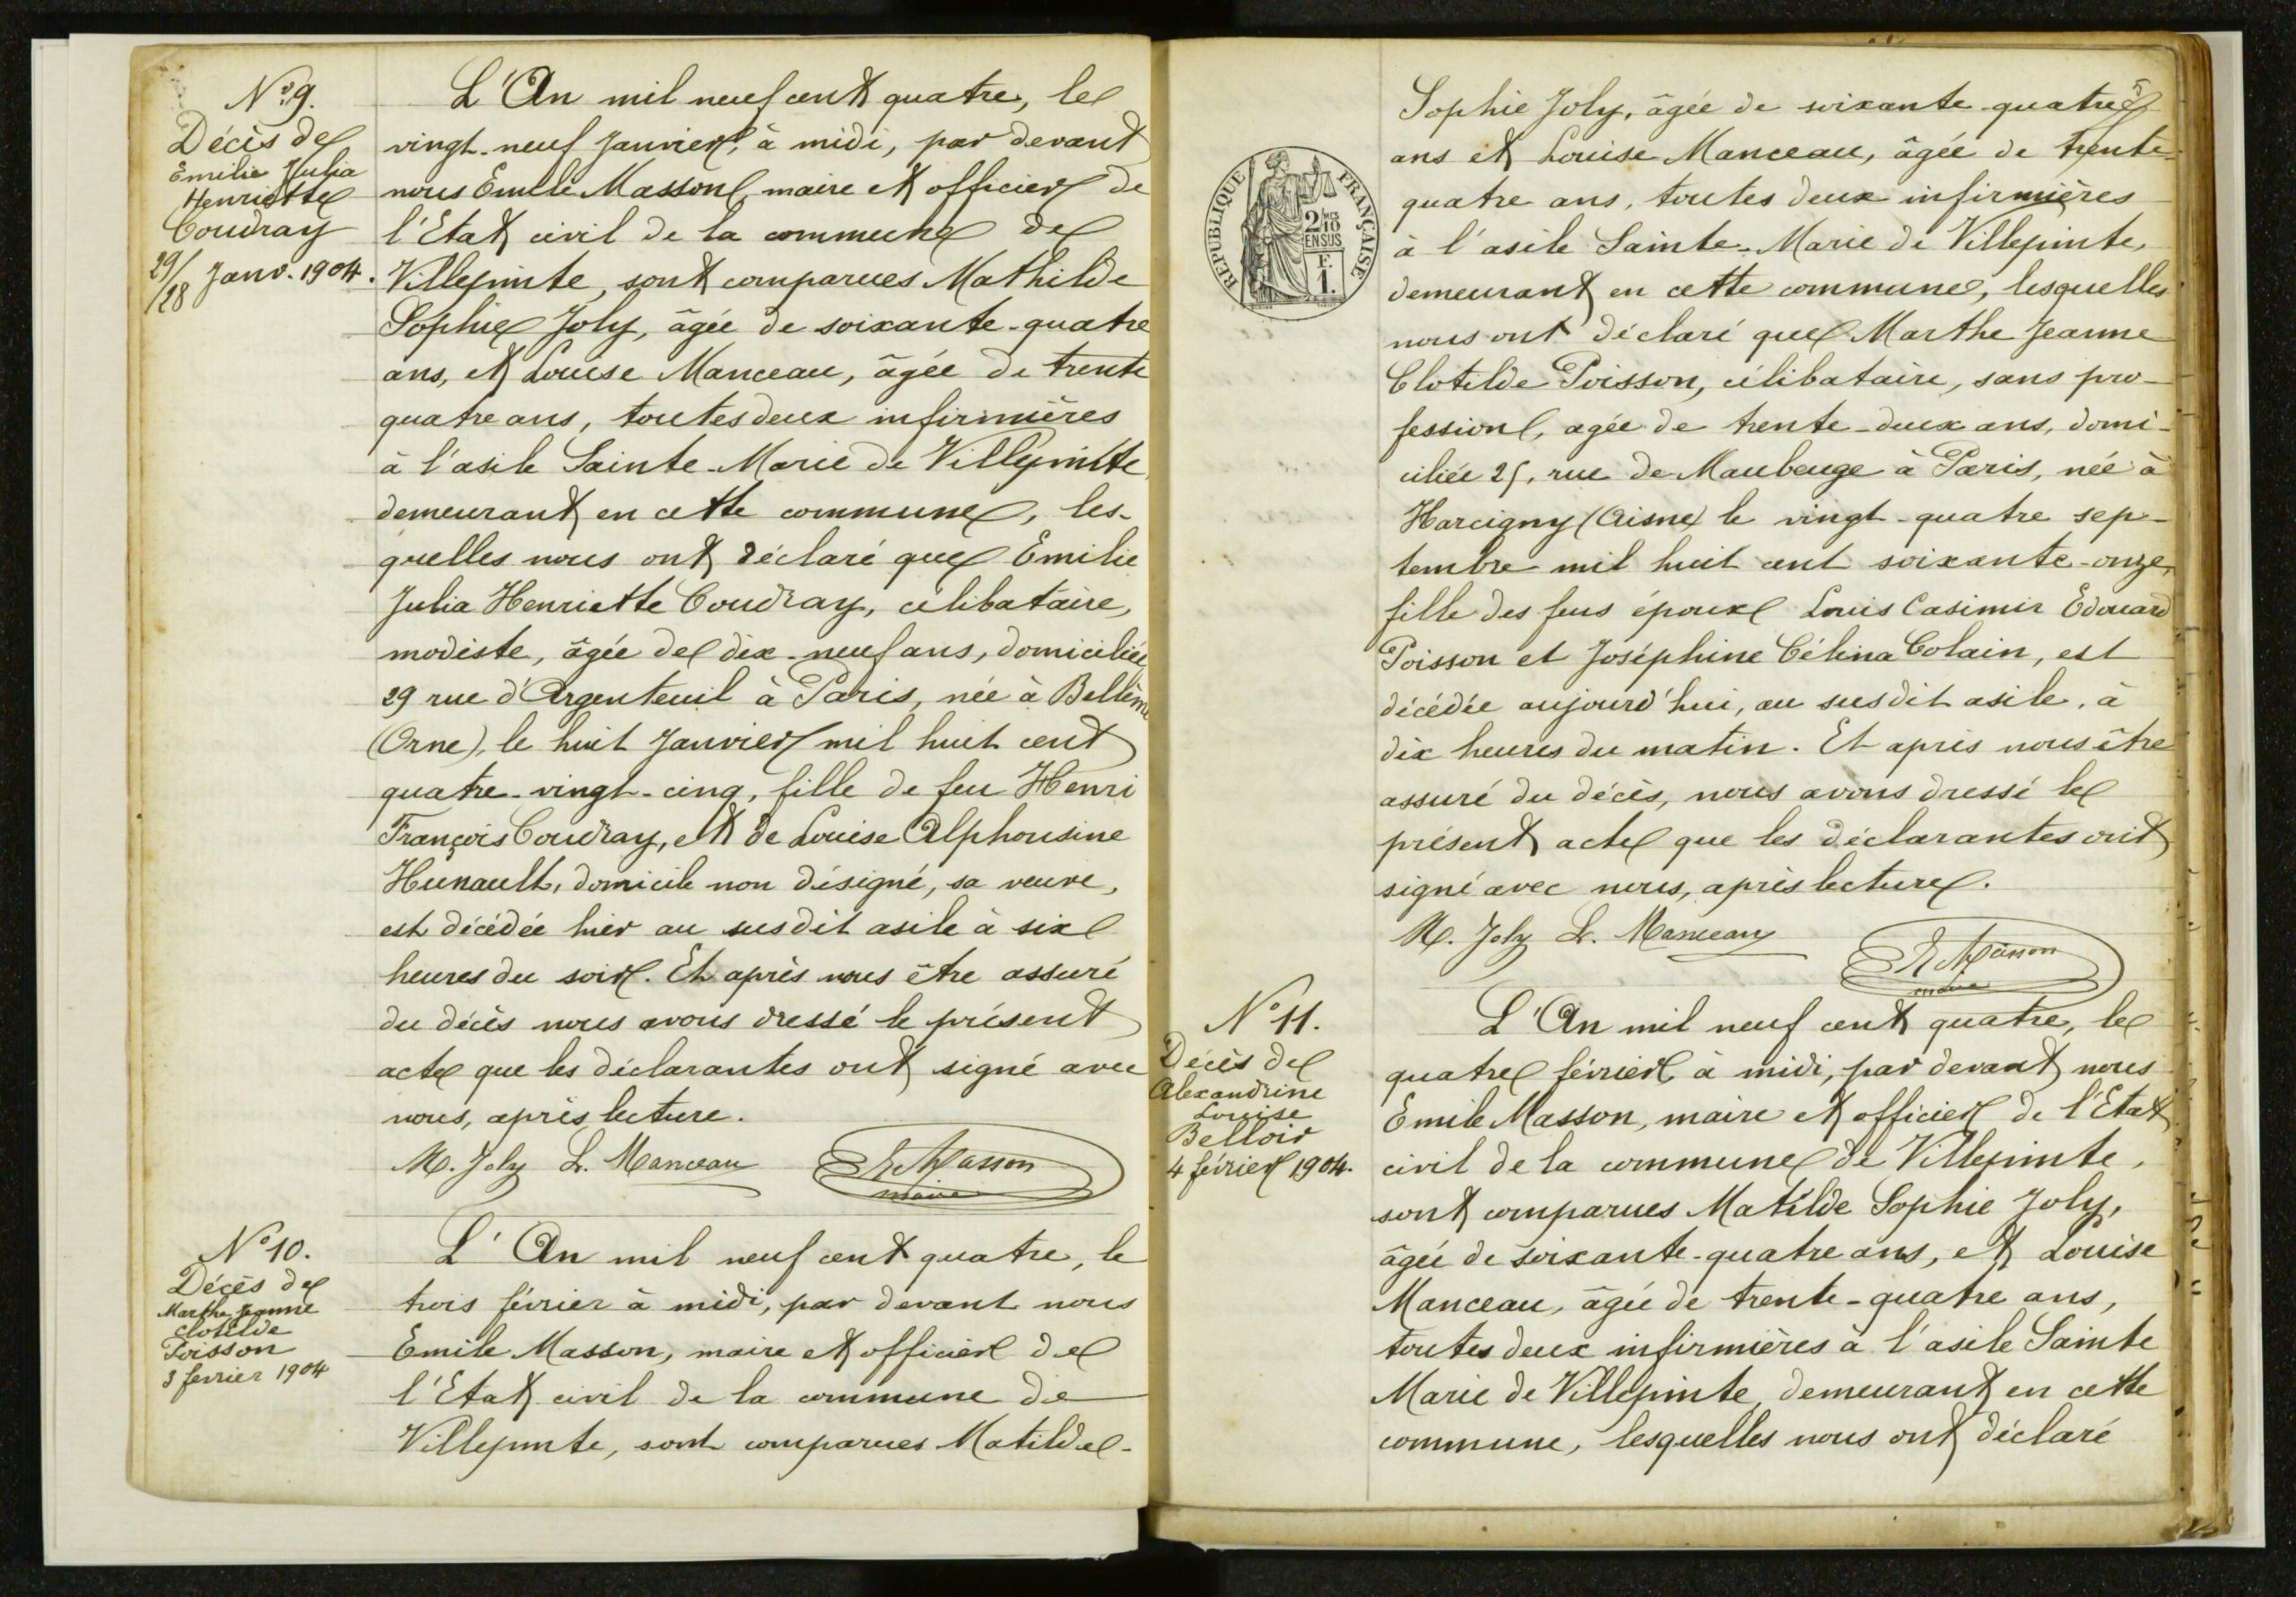 N° 9.
Décès de
Emilie Julia
Henriette
Coudray
29/28 Janv. 1904.
L'An mil neuf cent quatre, le
vingt-neuf Janvier, à midi, par devant
nous Emile Masson, maire et officier de
l'Etat civil de la commune de
Villepinte, sont comparues Mathilde
Sophie Joly, âgée de soixante-quatre
ans, et Louise Manceau, âgée de trente
quatre ans, toutes deux infirmières
à l'asile Sainte-Marie de Villepinte,
demeurant en cette commune, les-
quelles nous ont déclaré que Emilie
Julia Henriette Coudray, célibataire,
modiste, âgée de dix-neuf ans, domiciliée
29 rue d'Argenteuil à Paris, née à Bellême
(Orne), le huit Janvier mil huit cent
quatre-vingt-cinq, fille de feu Henri
François Coudray, et de Louise Alphonsine
Hunault, domicile non désigné, sa veuve,
est décédée hier au susdit asile à six
heures du soir. Et après nous être assuré
du décès nous avons dressé le présent
acte que les déclarantes ont signé avec
nous, après lecture.
M. Joly L. Manceau E. Masson
maire
N° 10.
Décès de
Marthe Jeanne
Clotilde
Poisson
3 fevrier 1904
L'An mil neuf cent quatre, le
trois février à midi, par devant nous
Emile Masson, maire et officier de
l'Etat civil de la commune de
Villepinte, sont comparues Matilde
Sophie Joly, âgée de soixante-quatre
ans et Louise Manceau, âgée de trente-
quatre ans, toutes deux infirmières
à l'asile Sainte-Marie de Villepinte,
demeurant en cette commune, lesquelles
nous ont déclaré que Marthe Jeanne
Clotilde Poisson, célibataire, sans pro-
fession, agée de trente-deux ans, domi-
ciliée 25, rue de Maubeuge à Paris, née à
Harcigny (Aisne) le vingt-quatre sep-
tembre mil huit cent soixante-onze,
fille des feus époux Louis Casimir Edouard
Poisson et Joséphine Célina Colain, est
décédée aujourd'hui, au susdit asile, à
dix heures du matin. Et après nous être
assuré du décès, nous avons dressé le
présent acte que les déclarantes ont
signé avec nous, après lecture.
M. Joly L. Manceau E. Masson
maire
RÉPUBLIQUE FRANÇAISE
2/10 EN SUS
F.
1.
N° 11.
Décès de
Alexandrine
Louise
Belloir
4 février 1904.
L'An mil neuf cent quatre, le
quatre février à midi, par devant nous
Emile Masson, maire et officier de l'Etat
civil de la commune de Villepinte,
sont comparues Matilde Sophie Joly,
âgée de soixante-quatre ans, et Louise
Manceau, âgée de trente-quatre ans,
toutes deux infirmières à l'asile Sainte
Marie de Villepinte, demeurant en cette
commune, lesquelles nous ont déclaré